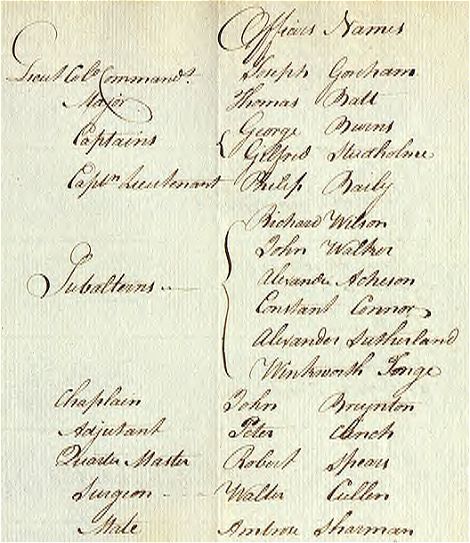 Officers Names
Lieut Colo Commandt. Joseph Gorham
Major Thomas Batt
Captains { George Burns
Gilfred Studholme
Captn Lieutenant Philip Baily
Richard Wilson
John Walker
Alexander Acheson
Subalterns { Constant Connor
Alexander Sutherland
Winkworth Tonge
Chaplain John Breynton
Adjutant Peter Clinch
Quarter Master Robert Spears
Surgeon Walter Cullen
Mate Ambrose Sharman